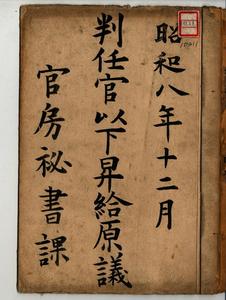 昭和八年十二月
判任官以下昇給原議
官房祕書課